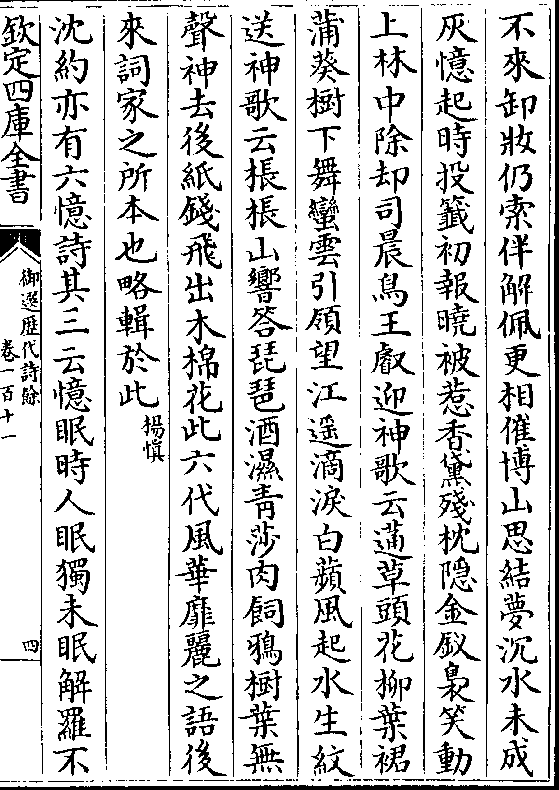 不來卸妝仍索伴解佩更相催博山思結夢沉水未成
灰憶起時投籖初報曉被惹香黛殘枕隠金釵裊笑動
上林中除却司晨鳥王叡迎神歌云蓪草頭花柳葉裙
蒲葵樹下舞蠻雲引領望江遥滴淚白蘋風起水生紋
送神歌云棖棖山響答琵琶酒濕青莎肉飼鴉樹葉無
聲神去後紙錢飛出木棉花此六代風華靡麗之語後
來詞家之所本也略輯於此楊慎
沈約亦有六憶詩其三云憶眠時人眠獨未眠解羅不
欽定四庫全書
御選歴代詩餘
卷一百十一
四